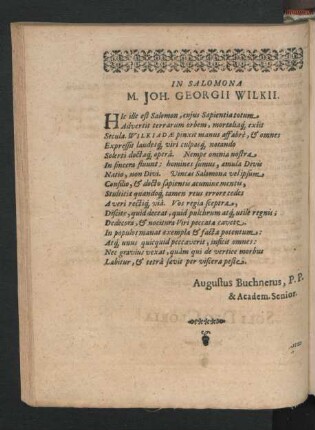 IN SALOMONA
M. JOH. GEORGII WILKII.
HIc ille est Salomon, cujus Sapientia totum
Advertit terrarum orbem, mortaliaq́; exlit
Secula. WILKIADÆ pinxit manus affabrè, & omnes
Expressit laudesq́; viri culpasq́; notando
Solerti doctaq́; operâ. Nempe omnia nostra
In sincera fluunt: homines sumus, æmula Divis
Natio, non Divi. Vincas Salomona vel ipsum
Consilio, & docto sapientis acumine mentis,
Stultitiæ quandoq́; tamen reus errore cedes
A veri rectiq́; viâ. Vos regia sceptra,
Discite, quid deceat, quid pulchrum atq́; utile regnis;
Dedecori, & noxitura Viri peccata cavete.
In populos manat exemplo & facta potentum:
Atq́; unus quicquid peccaverit, inficit omnes:
Nec gravius vexat, quàm qui de vertice morbus
Labitur, & tetrâ sævit per viscera peste.
Augustus Buchnerus, P. P.
& Academ. Senior.